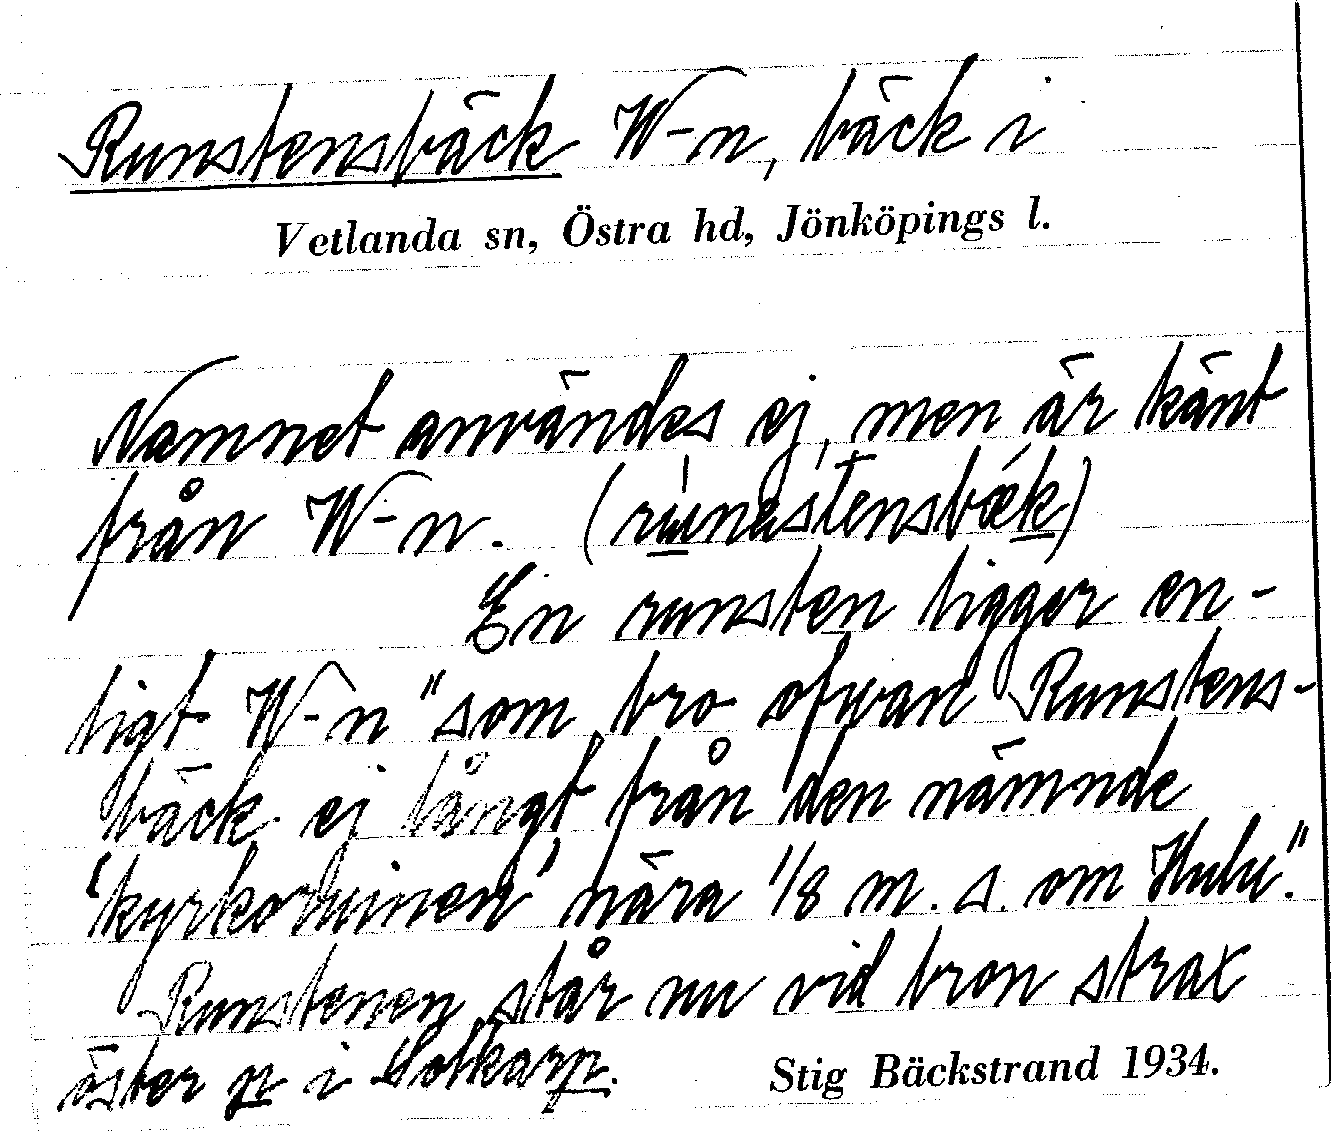 Runstensbäck W-n, bäck i
Vetlanda sn, Östra hd, Jönköpings l.
Namnet användes ej, men är känt
från W-n. (runestensbæk)
En runsten ligger en-
ligt W-n "som bro ofvan Runstens-
bäck ej långt från den nämnde
'kyrkoruinen' nära 1/8 m. s. om Hulu."
Runstenen står nu vid bron strax
öster p i
Stig Bäckstrand 1934.